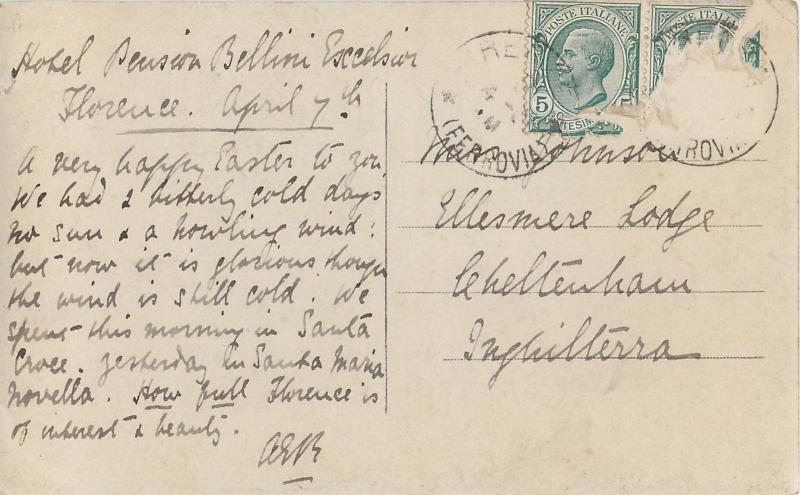 Hotel Pension Bellini Excelsior
Florence. April 7th
A very happy Easter to you
We had 2 bitterly cold days
no sun & a howling wind:
but now it is glorious though
the wind is still cold. We
spent this morning in Santa
Croce. yesterday in Santa Maria
Novella. How full Florence is
of interest & beauty.
AER
POSTE ITALIANE
5
POSTE ITALIANE
(FERROVIA
Johnson
Ellesmere Lodge
Cheltenham
Inghilterra